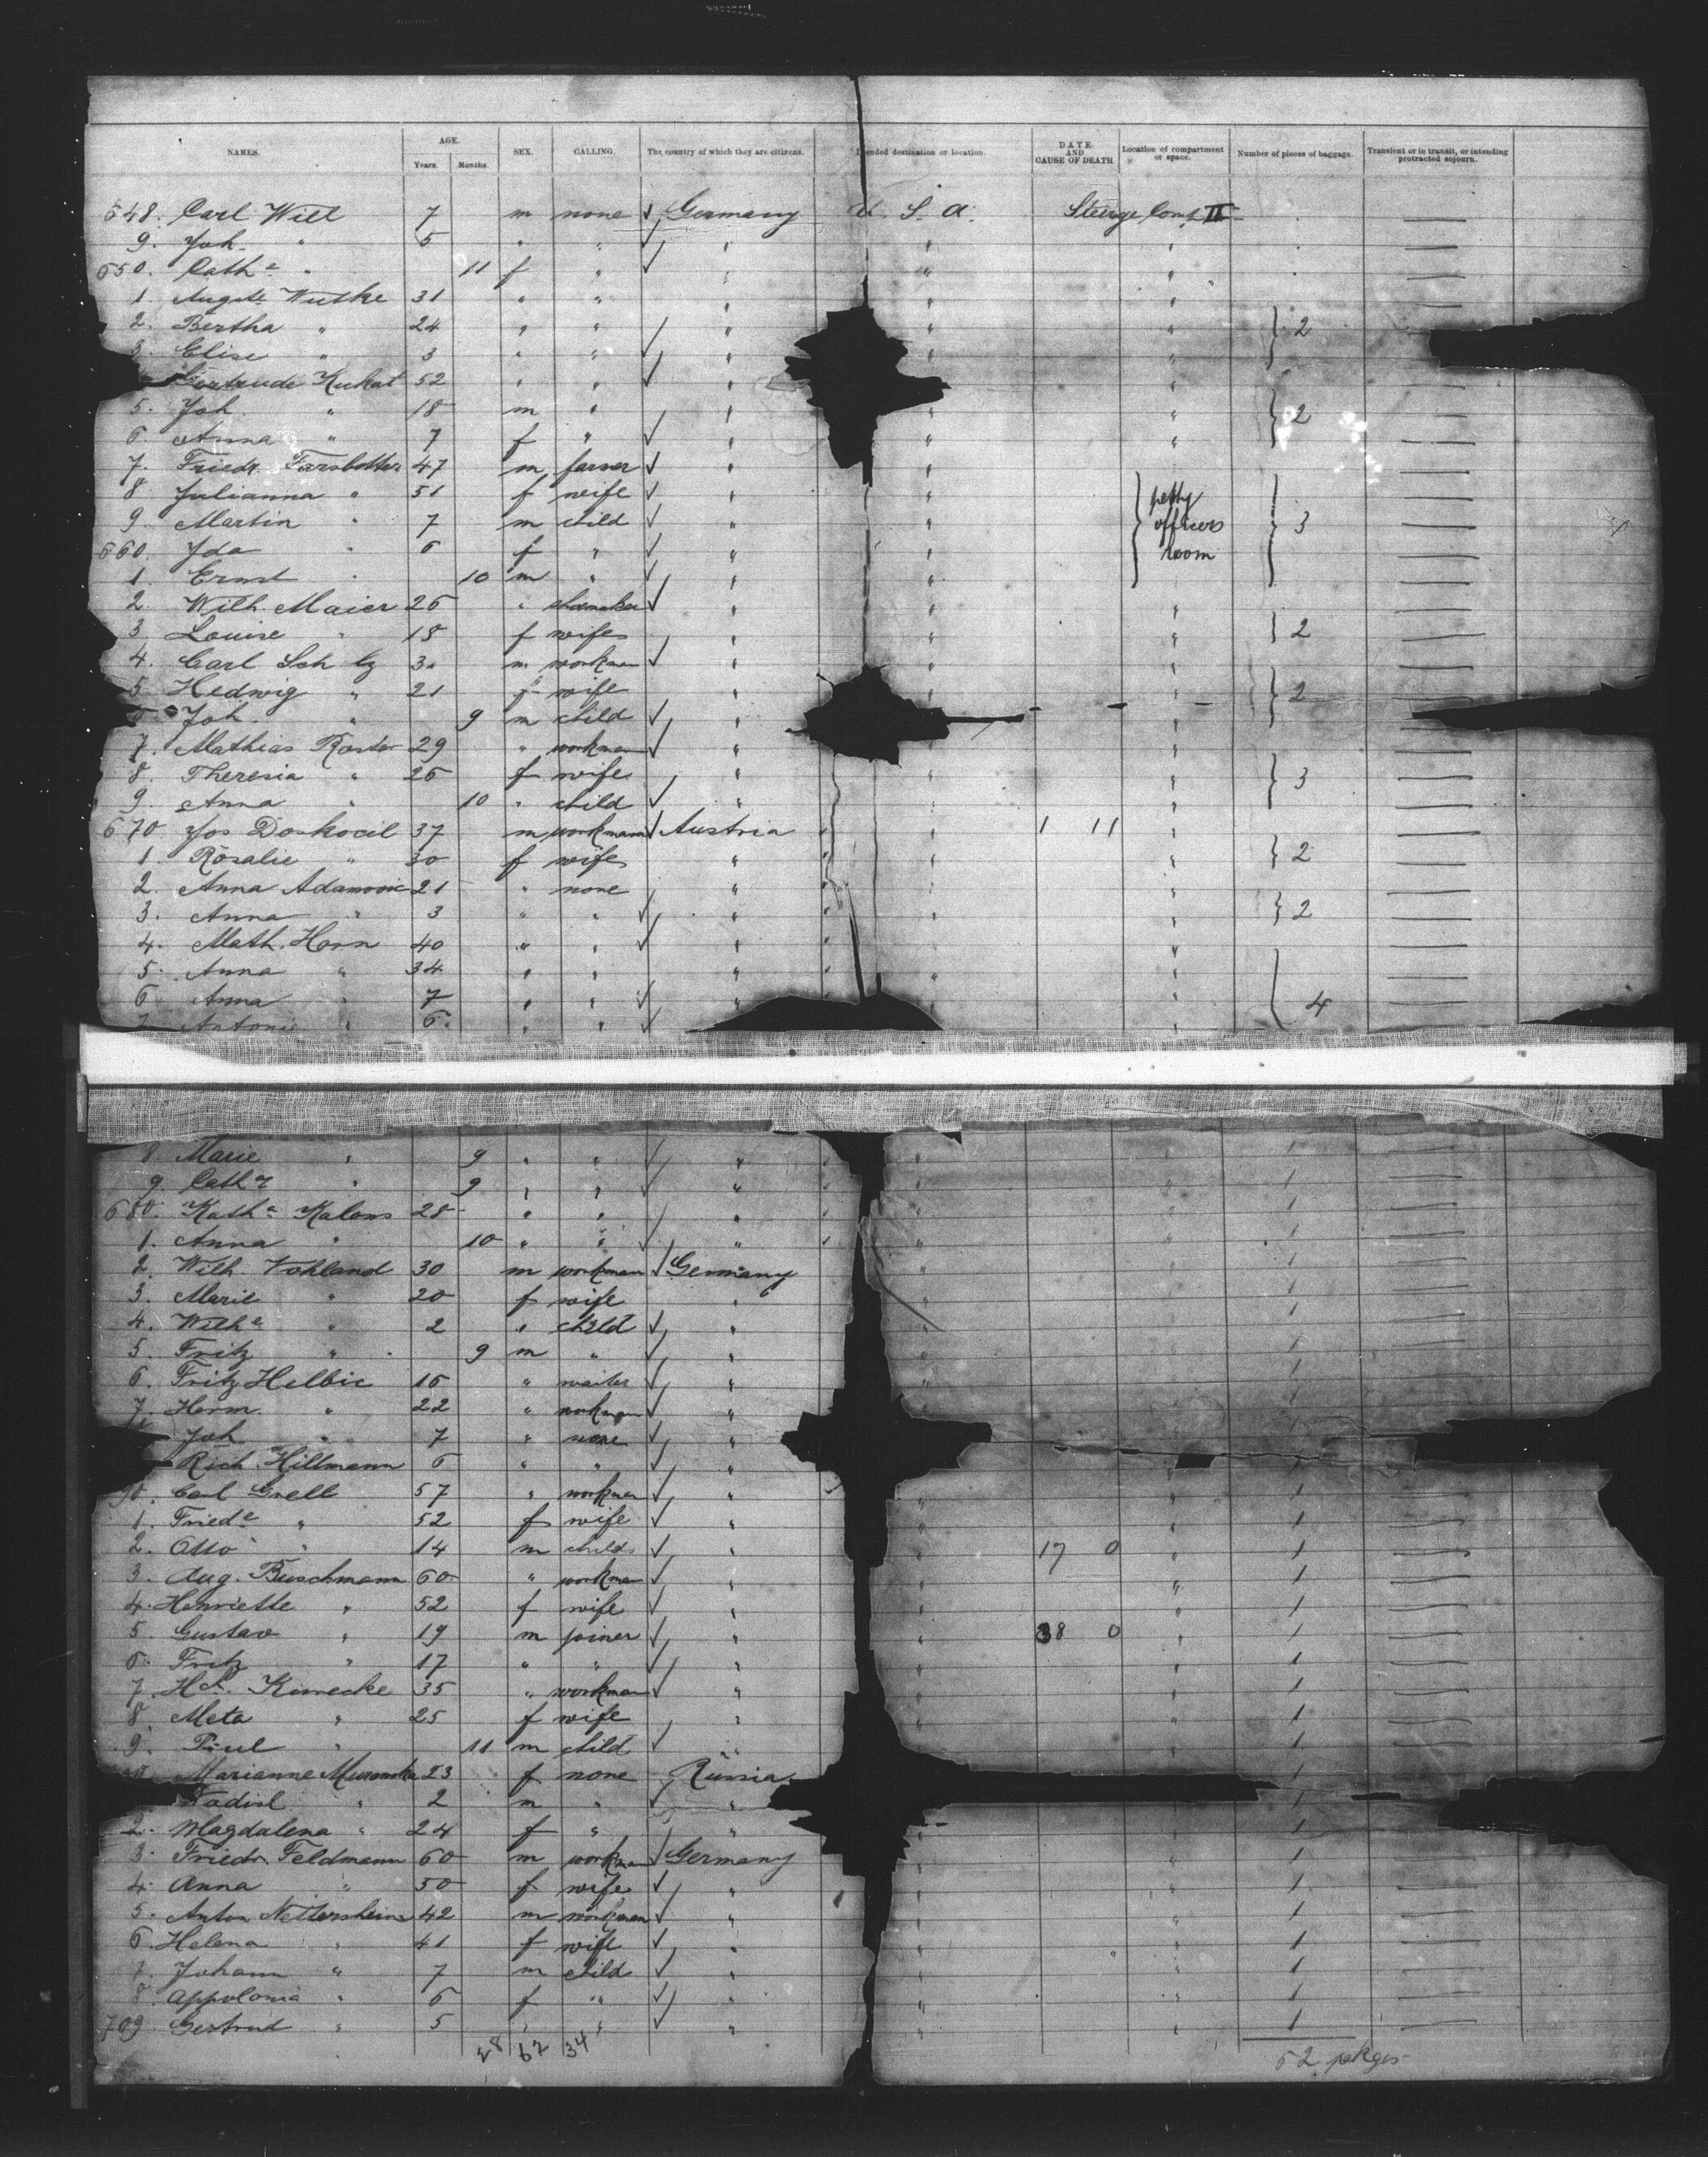 NAMES. AGE. Years. Months. SEX. CALLING. The country of which they are citizens. Intended destination or location. DATE AND CAUSE OF DEATH Location of compartment or space. Number of pieces of baggage. Transient or in transit, or intending protracted sojourn.
648. Carl Will 7 m none ✓ Germany U. S. A. Steerage Comp II
9. Joh. " 5 " " ✓ " " "
650. Cathe " 11 f " ✓ " " "
1. Auguste Wutke 31 " " " " "
2. Bertha " 24 " " ✓ " " " } 2
3. Elise " 3 " " ✓ " "
Gertrude Kukat 52 " " ✓ " "
5. Joh. " 18 m " " " " } 2
6. Anna " 7 f " ✓ " " "
7. Friedr. 47 m farmer ✓ " "
8. Julianna " 51 f wife ✓ " " petty
9. Martin " 7 m child ✓ " " officers } 3
660. Ida " 6 f " ✓ " " room
1. Ernst " 10 m " ✓ " "
2. Wilh. Maier 26 " shomaker ✓ " " "
3. Louise " 18 f wife " " " } 2
4. Carl Sch lz m workman ✓ " " "
5. Hedwig " 21 f wife " " " } 2
6. Joh. " 9 m child ✓ "
7. Mathias 29 " workman ✓ " "
8. Theresia " 26 f wife " " " } 3
9. Anna " 10 " child ✓ " " "
670. Jos Doskocil 37 m workman ✓ Austria " 1 11 "
1. Rosalie " 30 f wife " " " } 2
2. Anna Adamovic 21 " none " " "
3. Anna " 3 " " ✓ " " " } 2
4. Math. Horn 40 " " ✓ " " "
5. Anna " 34 " " " " "
6. Anna " 7 " " ✓ " " 4
7. Antonie " 6. " " ✓ "
8. Marie " 9 " " ✓ " " 1
9. Cathr " 9 " " ✓ " " 1
680. Katha 28 " " " " 1
1. Anna " 10 " " ✓ " " 1
2. Wilh. Vohland 30 m workman ✓ Germany " 1
3. Marie " 20 f wife " " 1
4. Wilhe " 2 " child ✓ " " 1
5. Fritz " 9 m " ✓ " " 1
6. Fritz Helbic 16 " waiter ✓ " " 1
7. Herm. " 22 " workman ✓ " " 1
Joh " 7 " none ✓ "
Rich. Hillmann 6 " " ✓ " " 1
90. Carl Grell 57 " workman ✓ " " " 1
1. Friede " 52 f wife ✓ " " " 1
2. Otto " 14 m child ✓ " " 17 0 " 1
3. Aug. Buschmann 60 " workman ✓ " " " 1
4. Henriette " 52 f wife ✓ " " " 1
5. Gustav " 19 m joiner ✓ " " 38 0 " 1
6. Fritz " 17 " " ✓ " " " 1
7. Hch. Kinecke 35 " workman ✓ " " " 1
8. Meta " 25 f wife " " " 1
9. Paul " 11 m child ✓ " " " 1
Marianne 23 f none Russia 1
" 2 m " ✓ " 1
2. Magdalena " 24 f " " " 1
3. Friedr. Feldmann 60 m workman ✓ Germany " " 1
4. Anna " 50 f wife ✓ " " " 1
5. Anton Nettersheim 42 m workman ✓ " " " 1
6. Helena " 41 f wife ✓ " " " 1
7. Johann " 7 m child ✓ " " " 1
8. Appolonia " 6 f " ✓ " " " 1
709. Gertrud " 5 " " ✓ " " 1
34 62 pkges